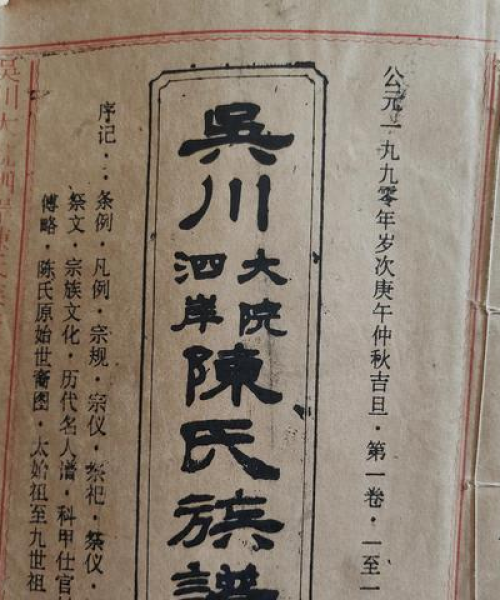 公元一九九零年岁次庚午仲秋吉旦·第一卷·一至一
吳川
大院
泗岸
陳氏族譜
序记··条例·凡例·宗规·宗仪·祭祀·祭仪·
祭文·宗族文化·历代名人谱·科甲仕官
傅略·陈氏原始世裔图·太始祖至九世祖